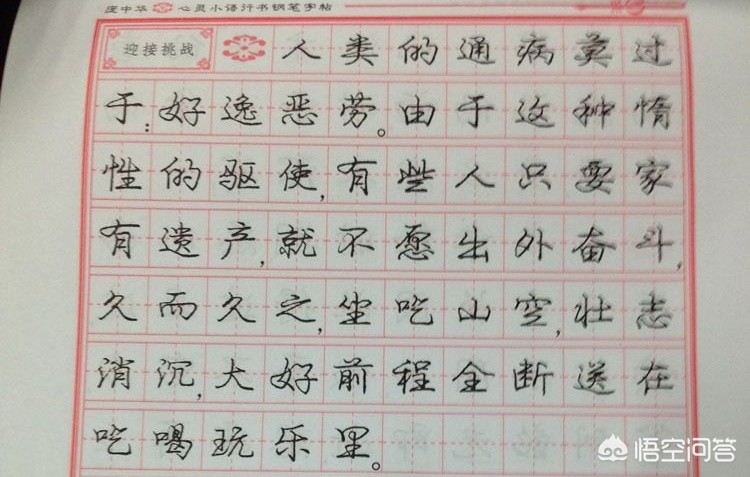 庞中华 心灵小语行书钢笔字帖
迎接挑战 人类的通病莫过
于:好逸恶劳。由于这种惰
性的驱使,有些人只要家
有遗产,就不愿出外奋斗,
久而久之,坐吃山空,壮志
消沉,大好前程全断送在
吃喝玩乐里。
悟空问答